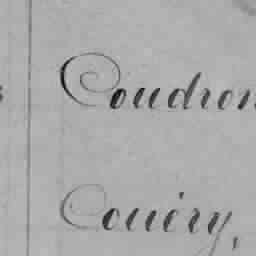 Coudron
Couëry,